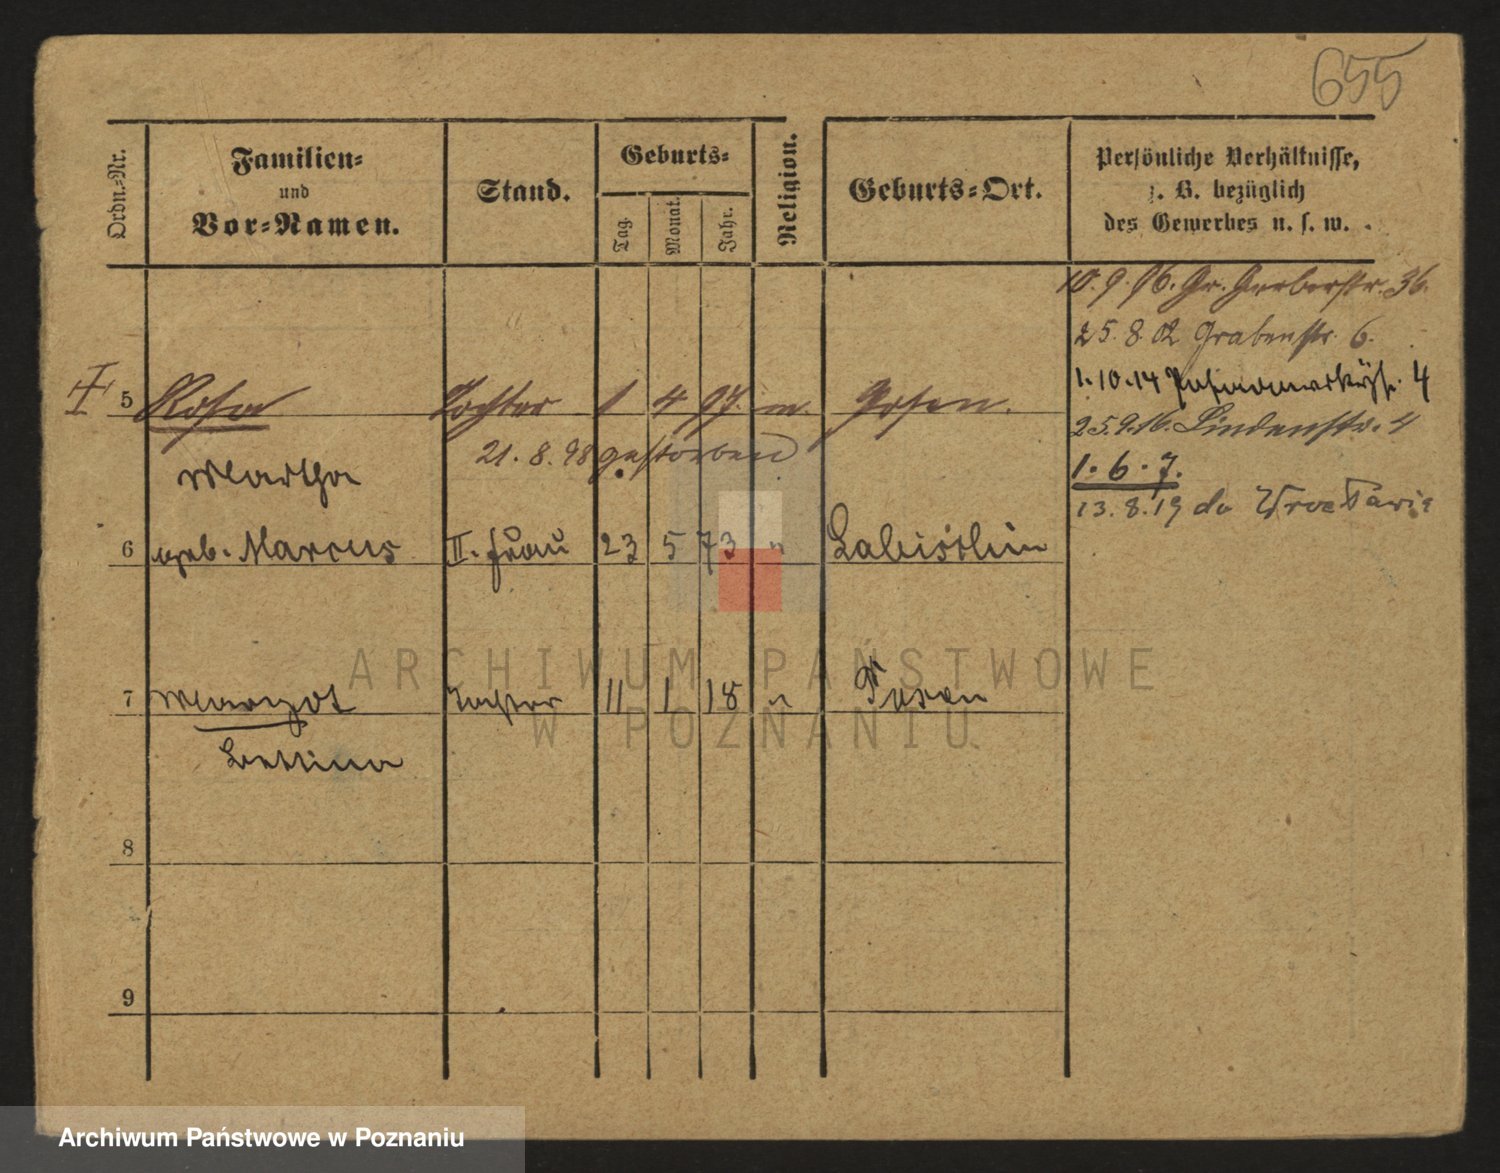 655
Ordn.-Nr. Familien- und Vor-Namen. Stand. Geburts- Tag. Monat. Jahr. Religion. Geburts-Ort. Persönliche Verhältnisse, z. B. bezüglich des Gewerbes u. s. w.
10. 9. 96. Gr. Gerberstr. 36.
25. 8. 02 Grabenstr. 6.
1.10.14 4
5 Rosa Tochter 1 4 97. m. Posen.
25.9.16. Lindenstr. 4
21. 8. 98 gestorben
1. 6. 7.
Martha
13. 8. 19 do Wrocławia
6 geb. Marcus II. Frau 23 5 73 " Labischin
7 Margot Tochter 11 1 18 " Posen
Bettina
8
9
ARCHIWUM PAŃSTWOWE
W POZNANIU
Archiwum Państwowe w Poznaniu